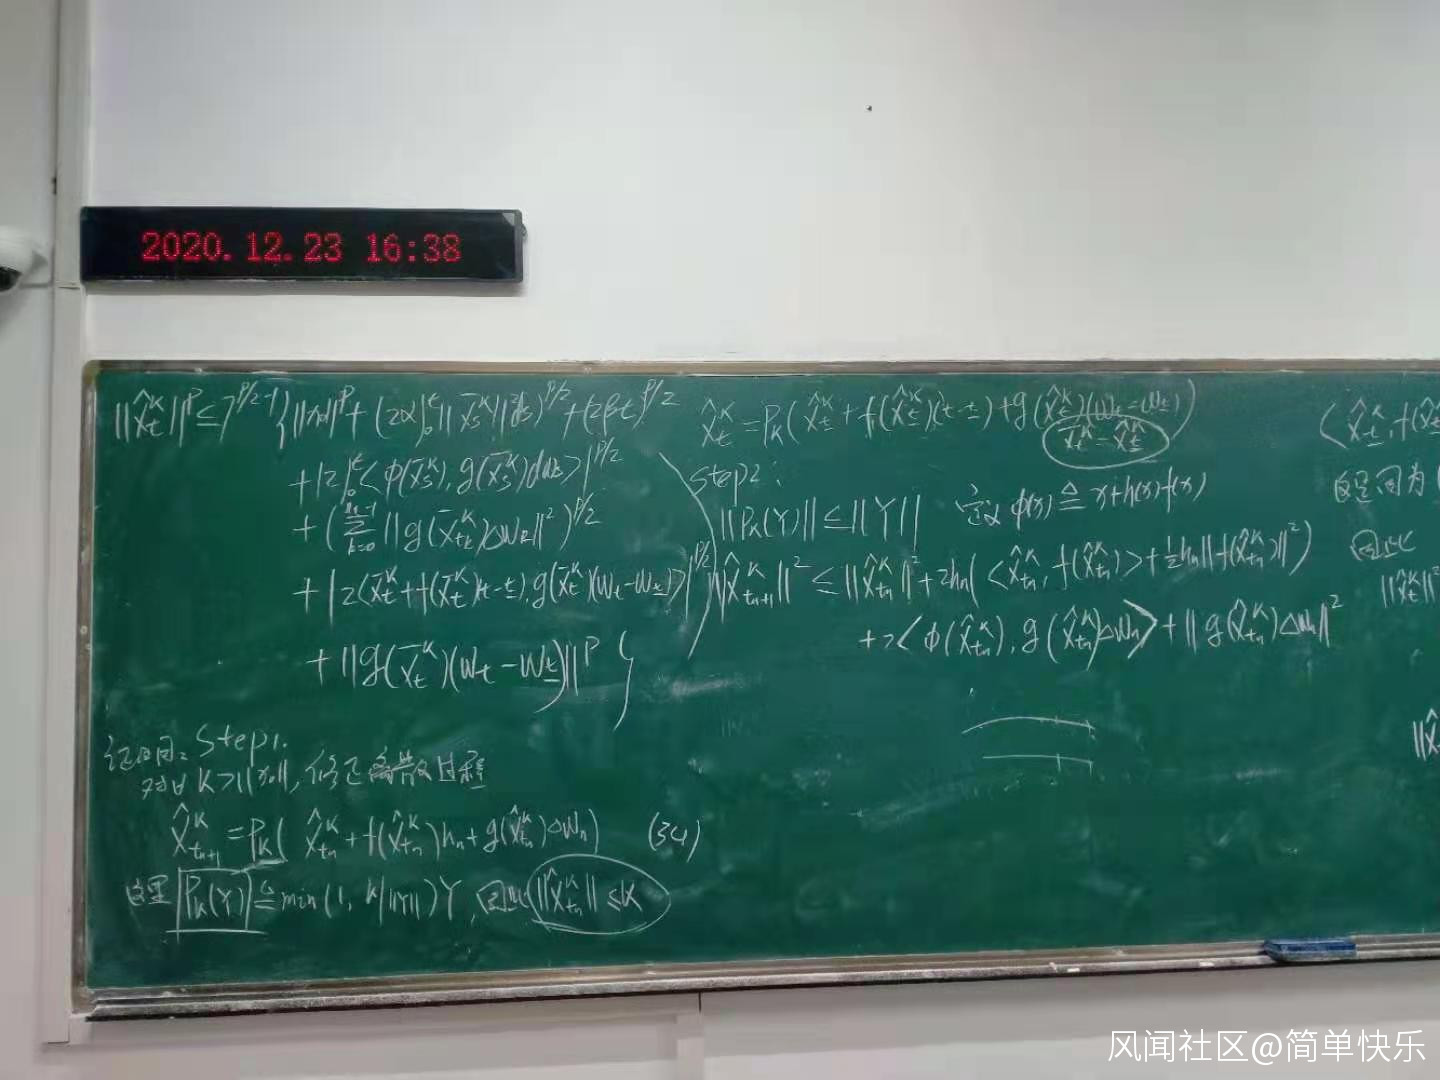 2020.12.23 16:38
‖X̂_t^K‖^P ≤ 7^{P/2-1}{‖x_0‖^P + (2α∫_0^t‖X̄_s^K‖^2ds)^{P/2} + (2βt)^{P/2}
+|2∫_0^t<φ(X̄_s^K), g(X̄_s^K)dW_s>|^{P/2}
+(∑_{k=0}^{n-1}‖g(X̄_{t_k}^K)ΔW_k‖^2)^{P/2}
+|2<X̄_t^K+f(X̄_t^K)(t-t̲), g(X̄_t^K)(W_t-W_t̲)>|^{P/2}
+‖g(X̄_t^K)(W_t-W_t̲)‖^P}
证明: Step1.
对∀K>‖x_0‖, 修正离散过程
X̂_{t_{n+1}}^K = P_K(X̂_{t_n}^K+f(X̂_{t_n}^K)h_n+g(X̂_{t_n}^K)ΔW_n) (34)
这里 P_K(Y) ≜ min(1, K/‖Y‖)Y, 因此 ‖X̂_{t_n}^K‖≤K
X̂_t^K = P_K(X̂_t̲^K+f(X̂_t̲^K)(t-t̲)+g(X̂_t̲^K)(W_t-W_t̲))
X̄_t^K = X̂_t̲^K
Step2:
‖P_K(Y)‖≤‖Y‖ 定义 φ(x)≜x+h(x)f(x)
‖X̂_{t_{n+1}}^K‖^2 ≤ ‖X̂_{t_n}^K‖^2+2h_n(<X̂_{t_n}^K, f(X̂_{t_n}^K)>+½h_n‖f(X̂_{t_n}^K)‖^2)
+2<φ(X̂_{t_n}^K), g(X̂_{t_n}^K)ΔW_n>+‖g(X̂_{t_n}^K)ΔW_n‖^2
<X̂_t̲^K, f(X̂
这是因为
因此
‖X̂_t^K‖^2
‖X̂
风闻社区@简单快乐